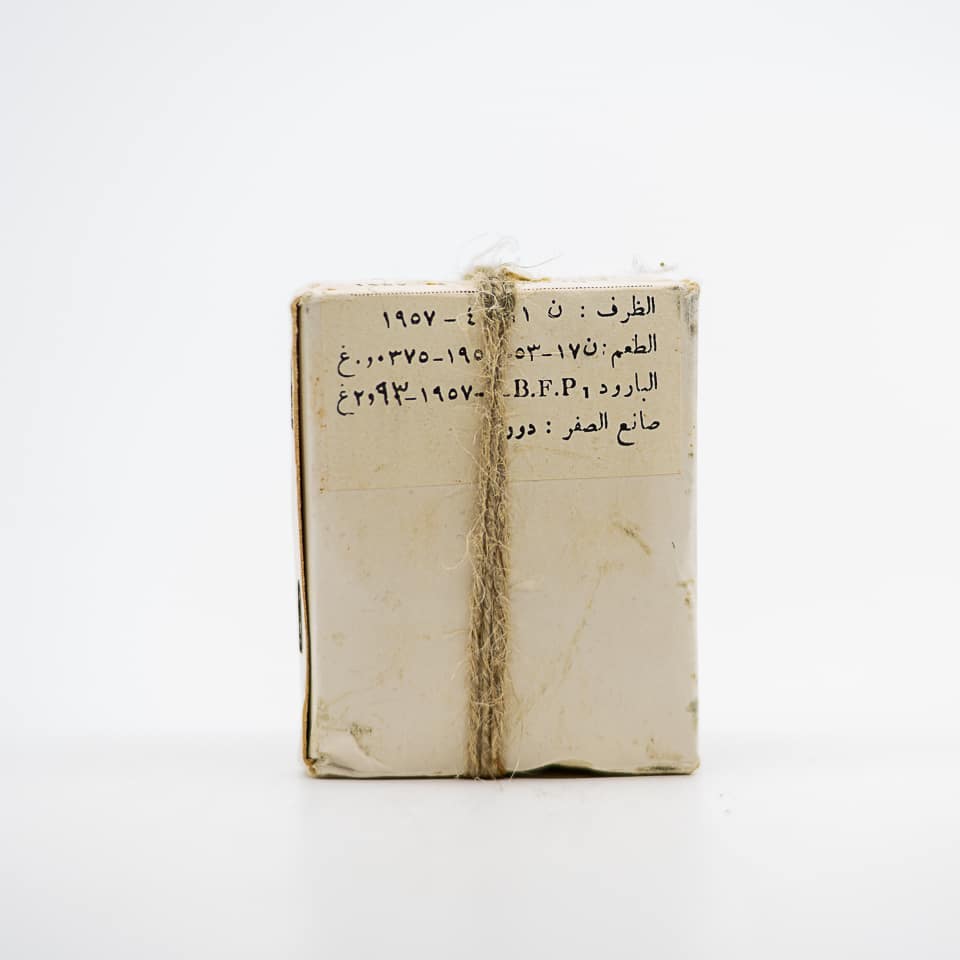 الظرف : ن ١ ٤ – ١٩٥٧
الطعم : ن ١٧–٥٣ ١٩٥ –٠,٠٣٧٥غ
البارود B.F.P ١ – –١٩٥٧–٢,٩٣غ
صانع الصفر :